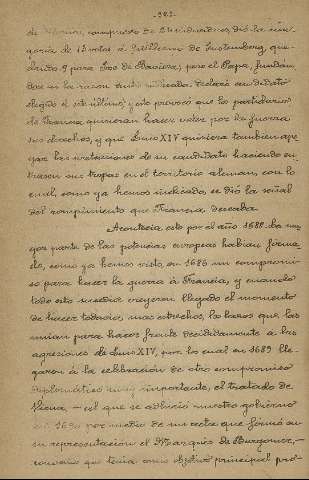 -282-
de Colonia, compuesto de 24 individuos, dió la ma-
yoría de 15 votos á Guillermo de Furstemberg, que-
dando 9 para José de Baviera; pero el Papa, fundán-
dose en la razón antes indicada, declaró candidato
elegido á este último, y esto provocó que los partidarios
de Francia quisieran hacer valer por la fuerza
sus derechos, y que Luis XIV quisiera también apo-
yar las pretensiones de su candidato haciendo en-
trasen sus tropas en el territorio alemán, con lo
cual, como ya hemos indicado, se dió la señal
del rompimiento que Francia deseaba.
Acontecía esto por el año 1688. La ma-
yor parte de las potencias europeas habían forma-
do, como ya hemos visto, en 1686 un compromi-
so para hacer la guerra á Francia, y cuando
todo esto sucedía creyeron llegado el momento
de hacer todavía más estrechos los lazos que las
unían para hacer frente decididamente á las
agresiones de Luis XIV, por lo cual en 1689 lle-
garon á la celebración de otro compromiso
diplomático muy importante, el tratado de
Viena, -al que se adhirió nuestro gobierno
en 1690 por medio de un acta que firmó en
su representación el Marqués de Burgomes,-
convenio que tenía como objetivo principal pres-